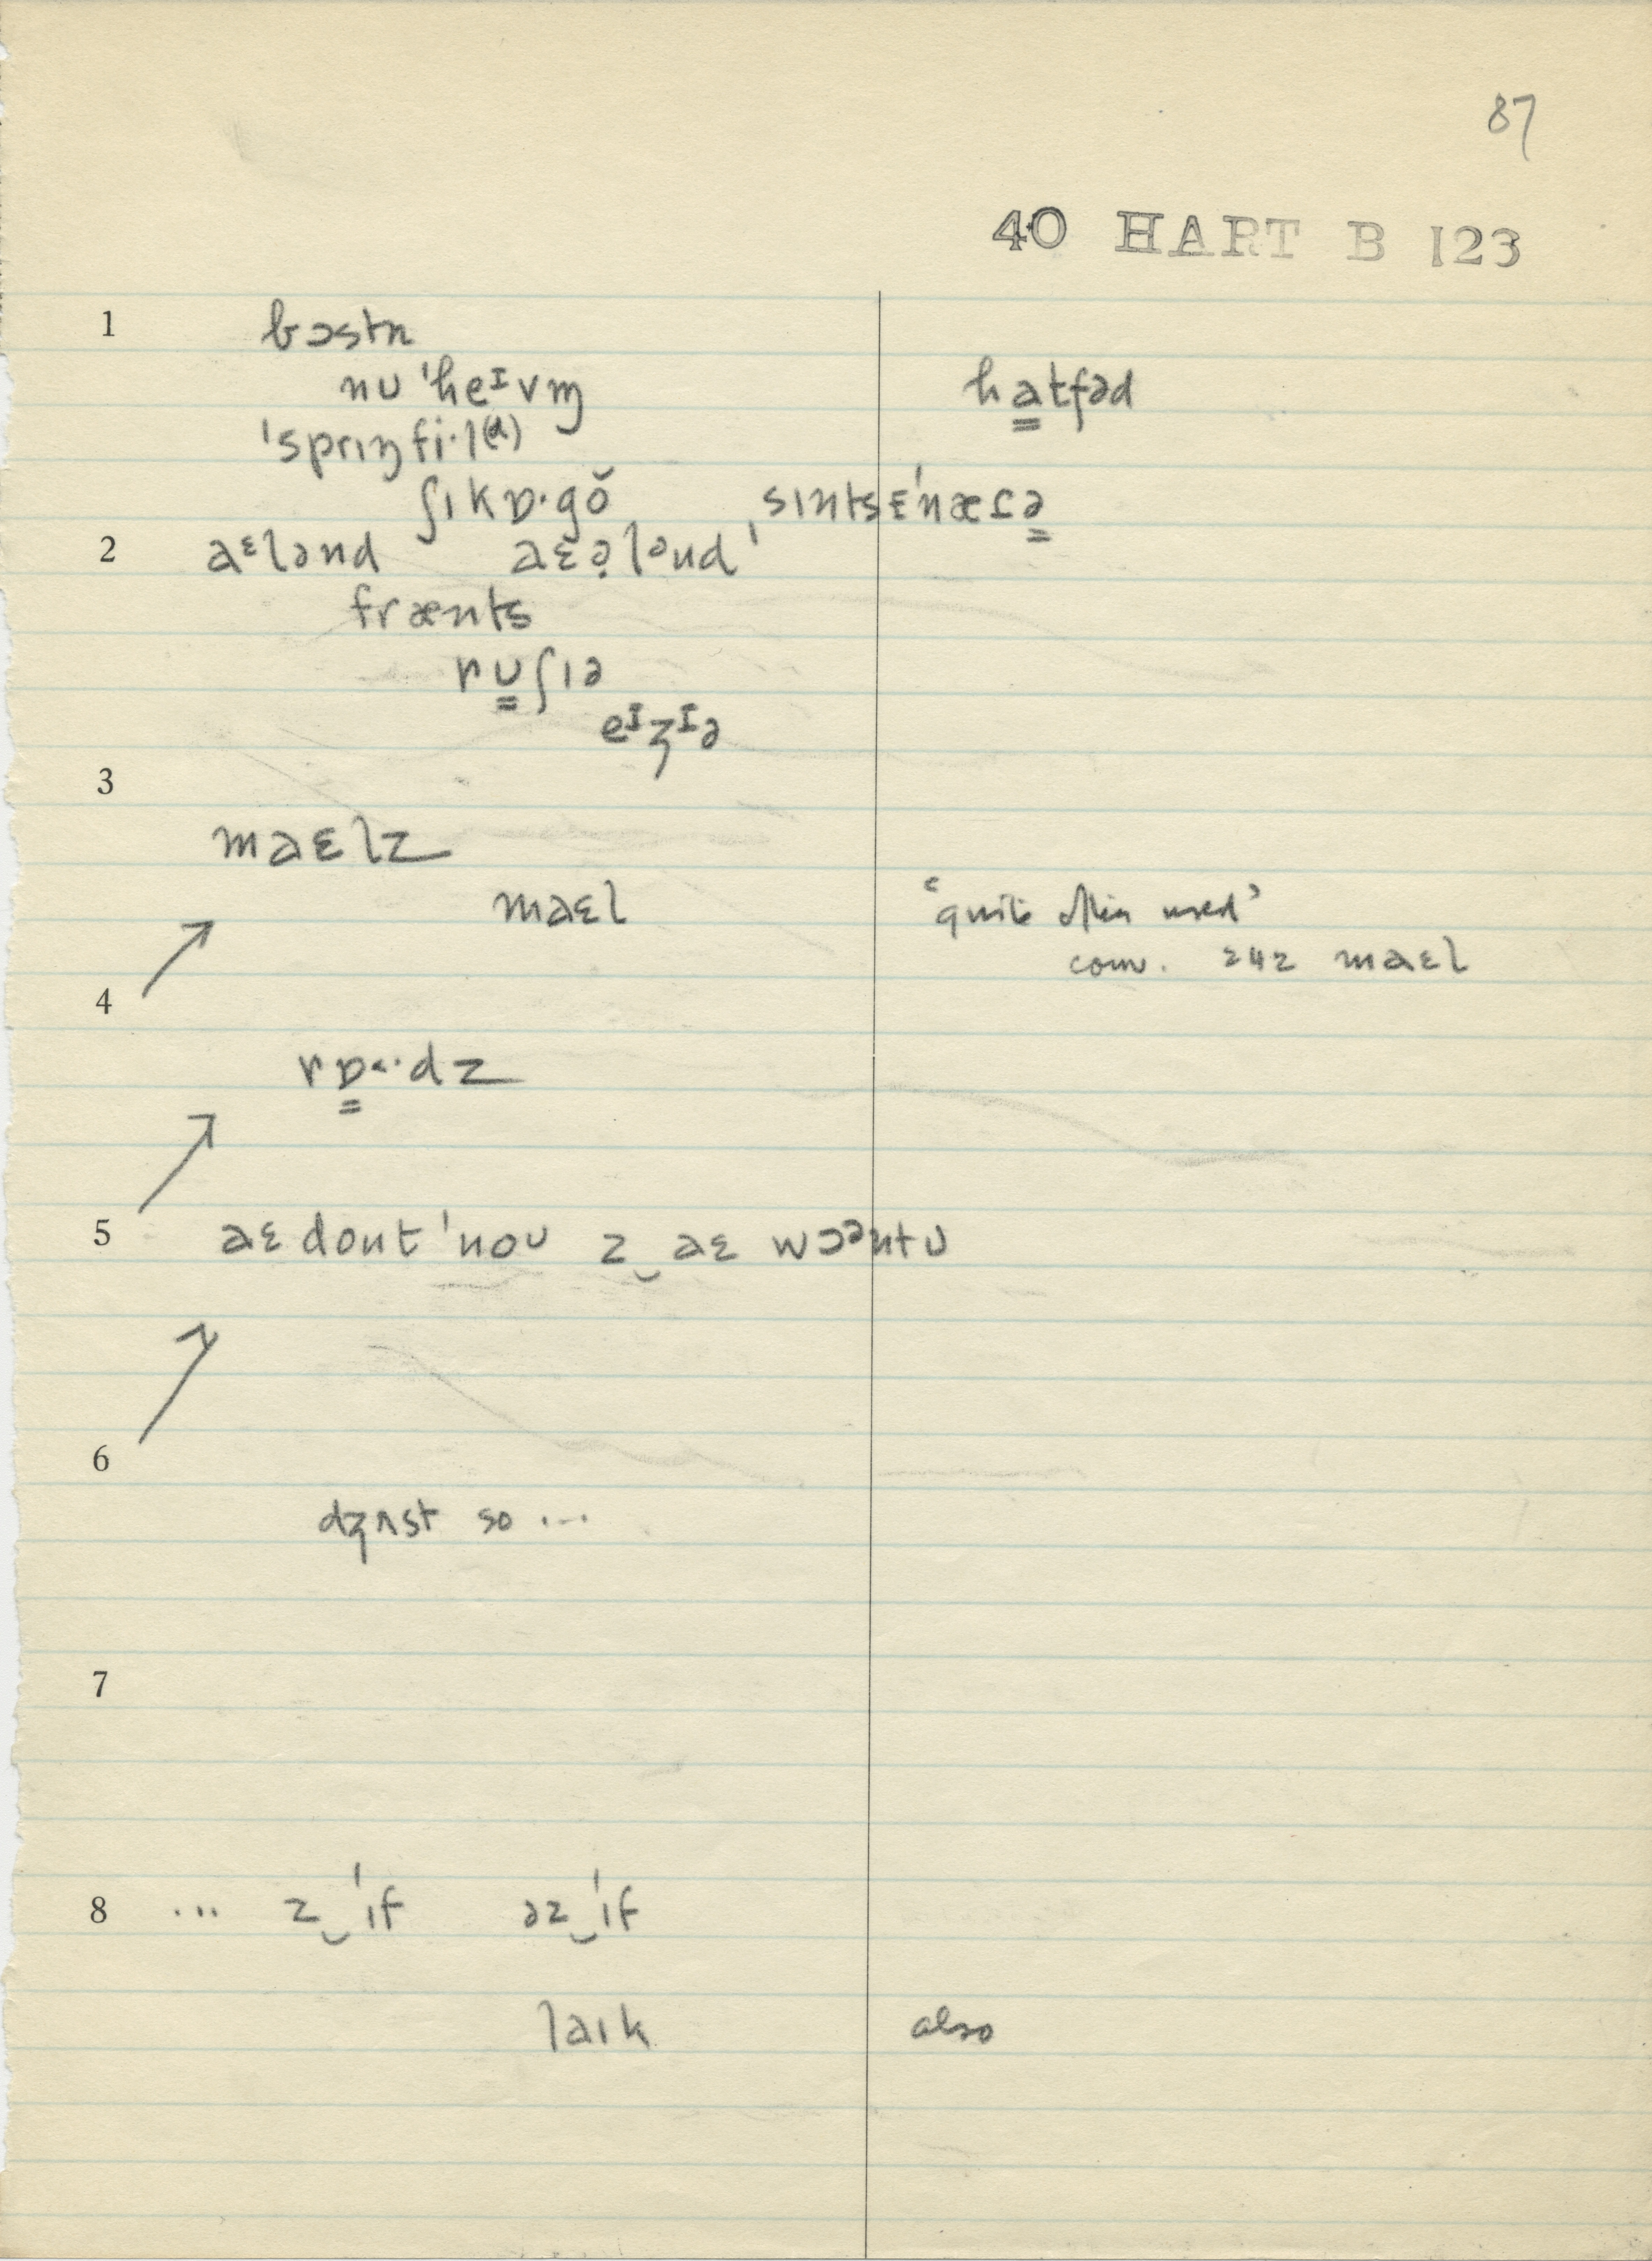 87
40 HART B 123
1 bɔstn
nʊ ˈheᴵvm̩ ha̳tfəd
ˈsprɪŋfi·l(d)
ʃɪkɒ·gŏ ˌsɪntsɛˈnæɾə̳
2 aᵋlənd aɛə̣lənd
frænts
rʊ̳ʃɪə
eᴵʒᴵə
3
maɛlz
maɛl "quite often used"
4 conv. 242 maɛl
rɒ̳˂·dz
5 aɛ dont ˈnoʊ z‿aɛ wɔᵊntʊ
6
dʒʌst so ...
7
8 ... z‿ˈɪf əz‿ˈɪf
laɪk also